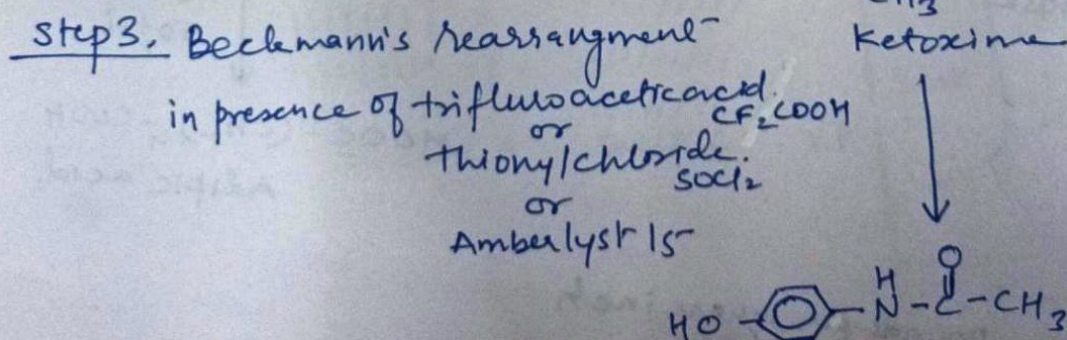 CH3
Step 3. Beckmann's rearrangment
Ketoxime
in presence of trifluroaceticacid.
CF2COOH
or
Thionylchloride.
SOCl2
or
Amberlyst 15
HO
H
N-C-CH3
O